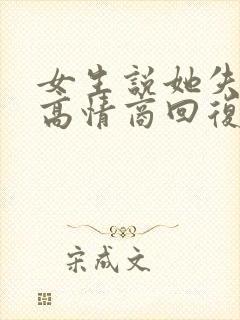 女生説她失
高情商回復
宋成文